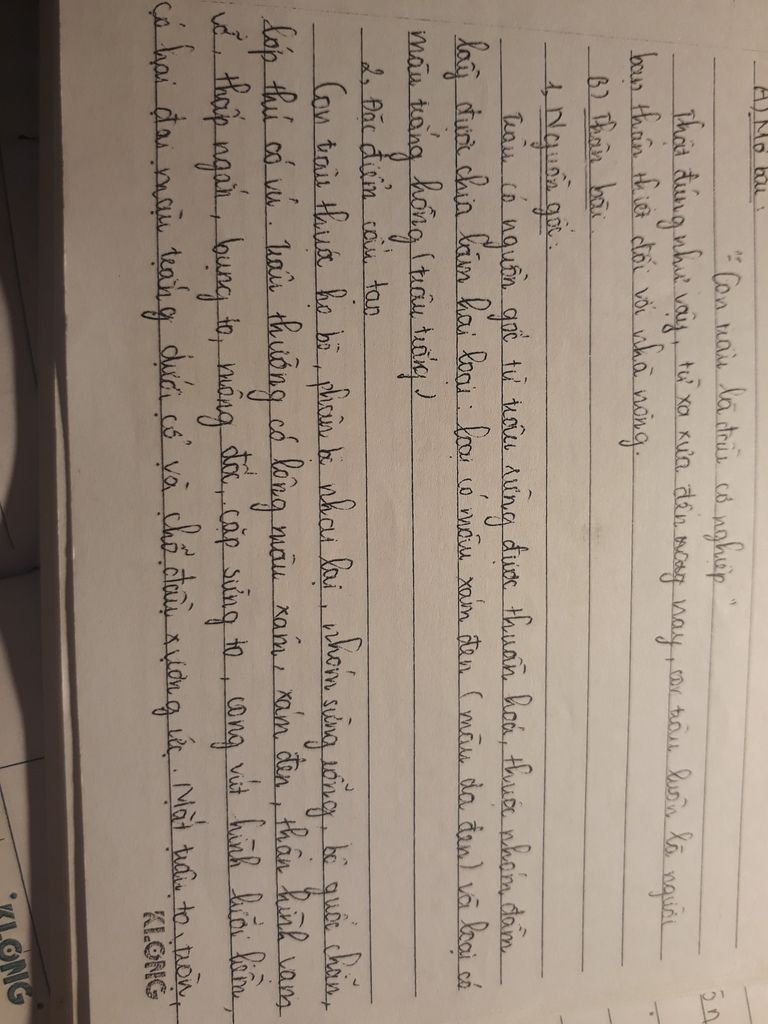 A) Mở bài:
" Con trâu là đầu cơ nghiệp "
Thật đúng như vậy, từ xa xưa đến nay, con trâu luôn là người
bạn thân thiết đối với nhà nông.
B) Thân bài
1, Nguồn gốc:
Trâu có nguồn gốc từ trâu rừng được thuần hoá, thuộc nhóm đầm
lầy được chia làm hai loại: loại có màu xám đen (màu da đen) và loại có
màu trắng hồng (trâu trắng)
2, Đặc điểm cấu tạo
Con trâu thuộc họ bò, phân bộ nhai lại, nhóm sừng rỗng, bộ guốc chẵn,
lớp thú có vú. Trâu thường có lông màu xám, xám đen, thân hình vạm
vỡ, thấp ngắn, bụng to, mông dốc, cặp sừng to, cong vút hình lưỡi liềm,
có hai đai màu trắng dưới cổ và chỗ đầu xương ức. Mắt trâu to, tròn,
KLONG
KLONG